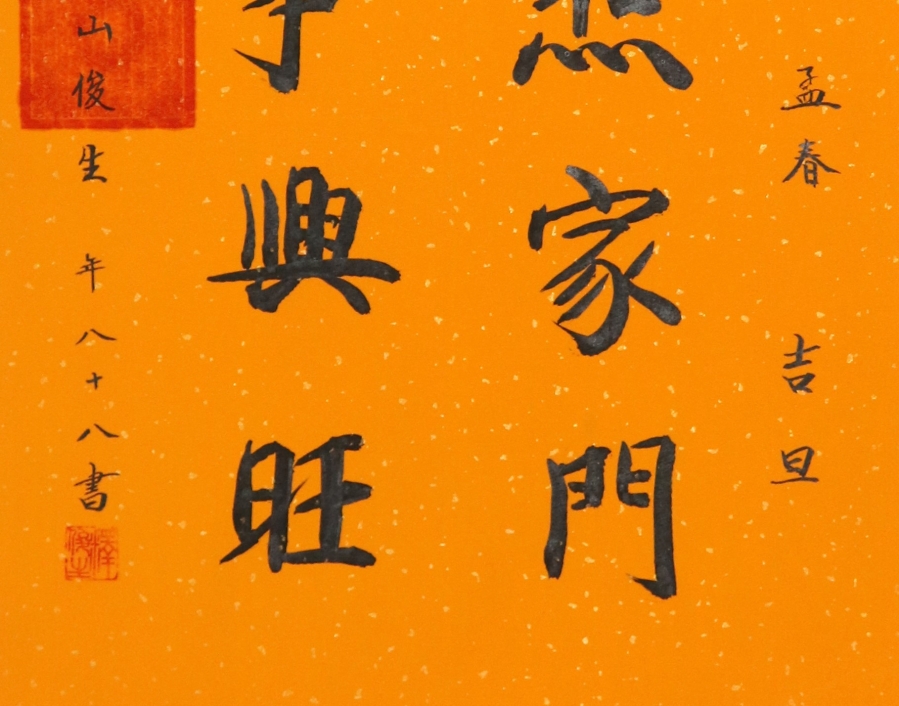 孟春 吉旦
家門
興旺
山俊生 年八十八書